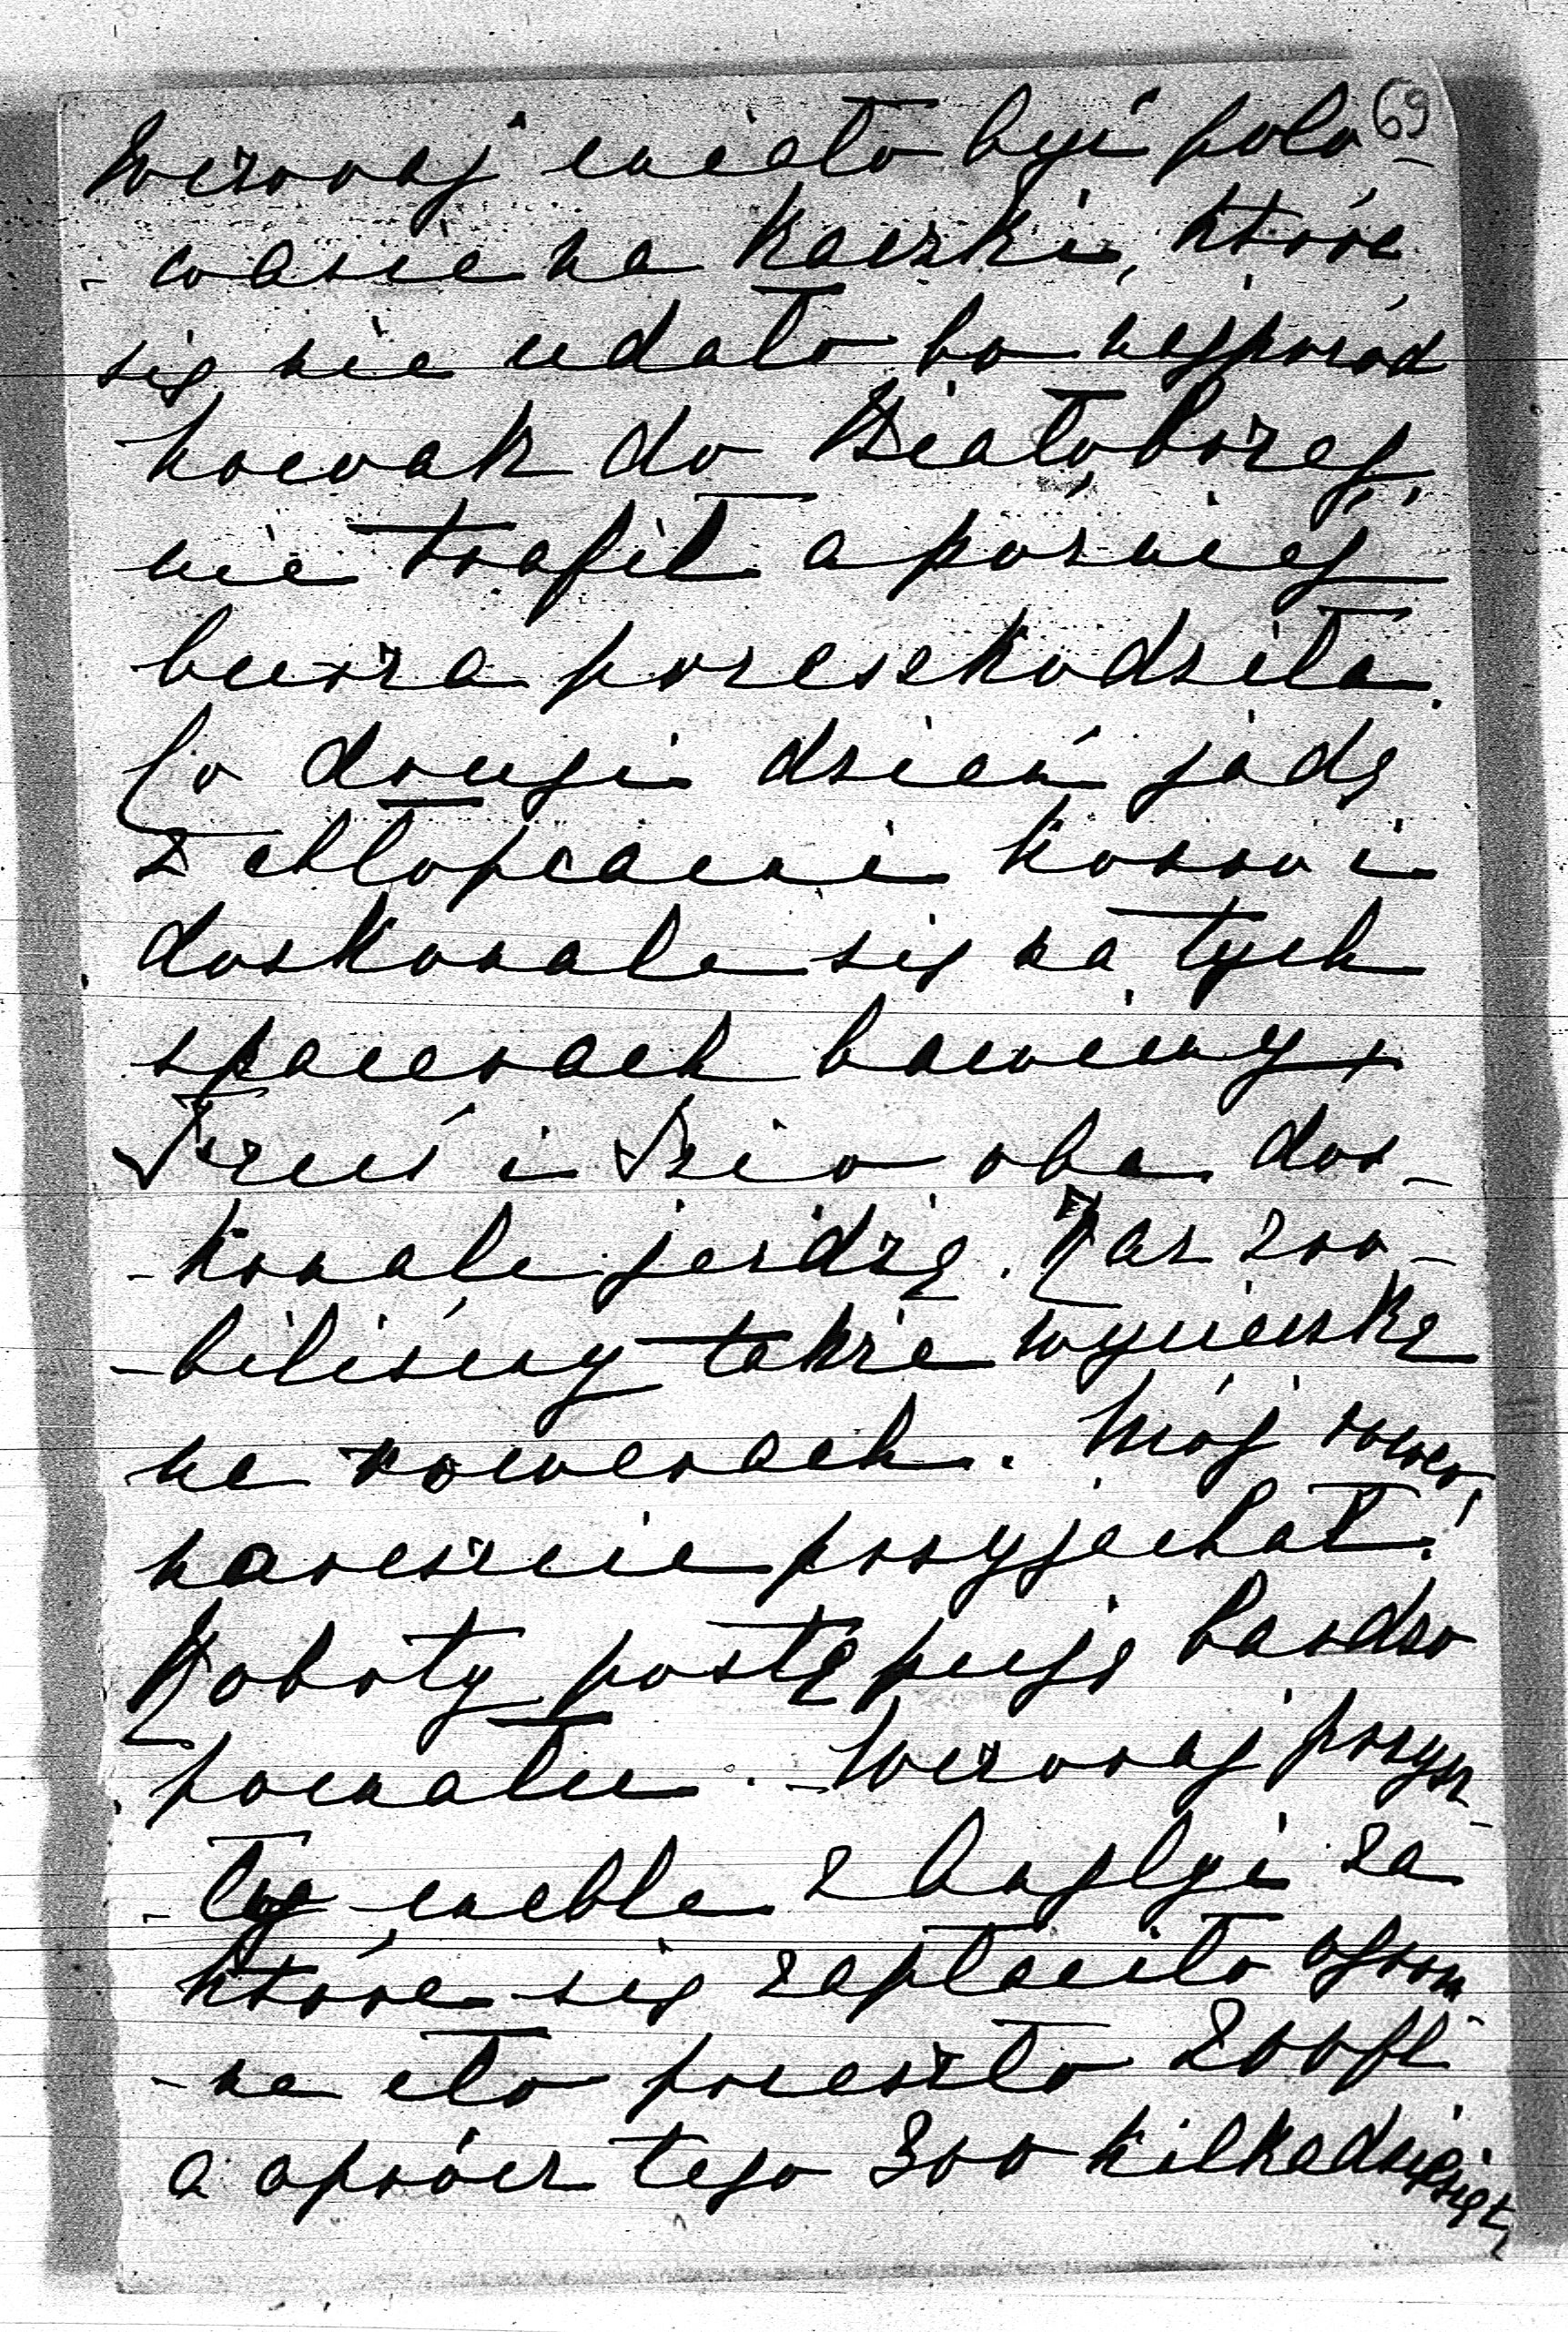 69
Wczoraj miało być polo-
-wanie na kaczki, które
się nie udało bo najprzód
Nowak do Białoboreg
nie trafił a poźniej
burza przeszkodziła.
Co drugi dzień jadę
z chłopcami konno i
doskonale się na tych
spacerach bawimy,
i oba dos-
-konale jeżdżą. Raz zro-
-biliśmy także wycieczkę
na rowerach. Mój rower
nareszcie przyjechał!
Roboty postępują bardzo
pomału. Wczoraj przysz-
-ły meble z Anglyi za
które się zapłaciło ogrom
-ne cło przeszło 200 fl
a oprócz tego 300 kilkadziesiąt